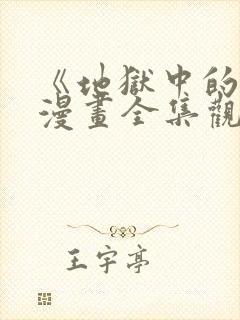 《地獄中的
漫畫全集觀
王宇亭